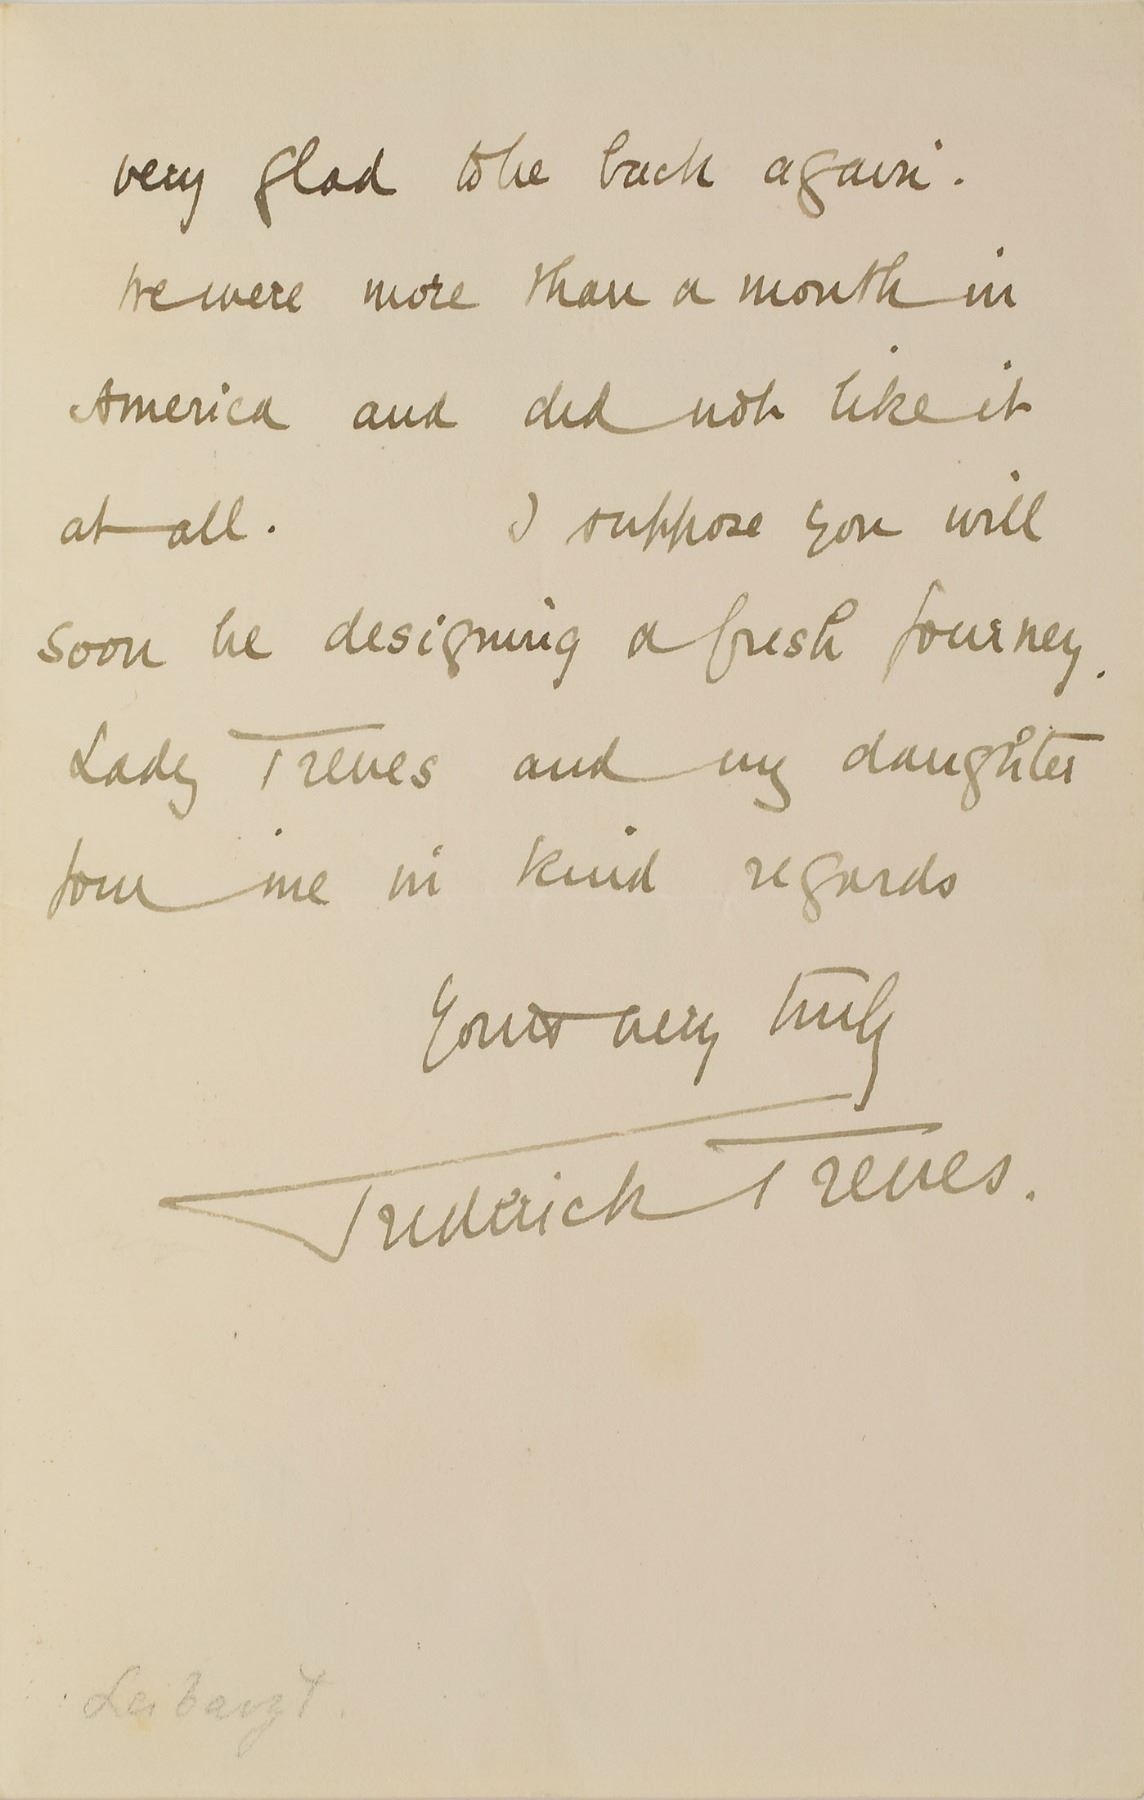 very glad to be back again.
We were more than a month in
America and did not like it
at all. I suppose you will
soon be designing a fresh journey.
Lady Treves and my daughter
join me in kind regards
Yours very truly
Frederick Treves.
Leibarzt.